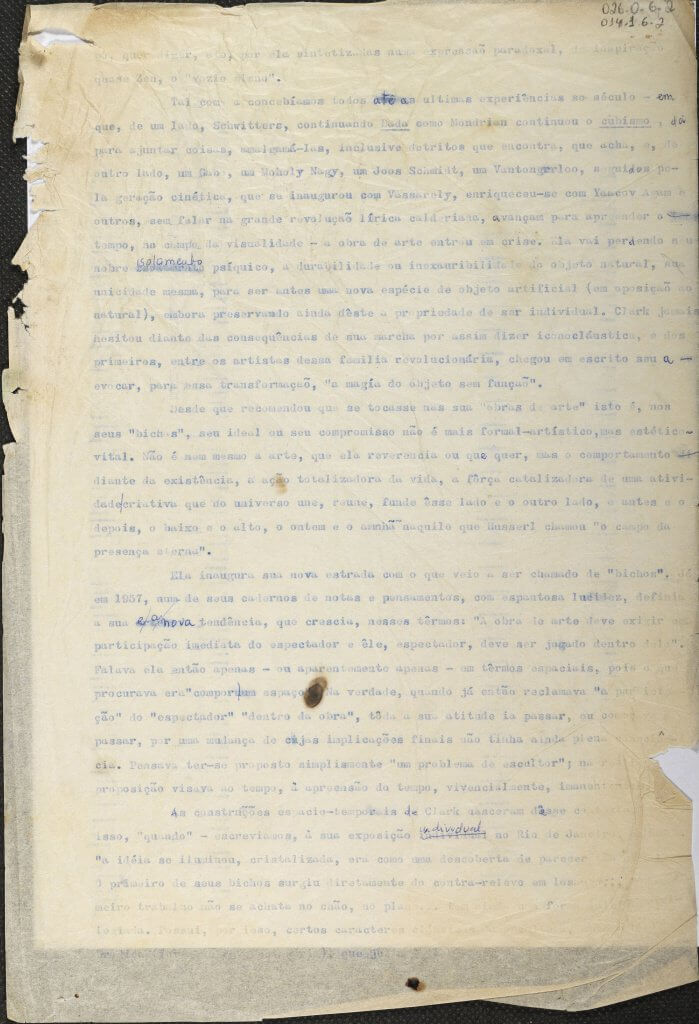 026.0.6.2
014.1 6.2
quer dizer, por ela sintetizadas numa expressão paradoxal, de inspiração
quase Zen, o "vazio pleno".
Tal como a concebíamos todos até as ultimas experiências so século - em
que, de um lado, Schwitters, continuando Dada como Mondrian continuou o cubismo, dá
para ajuntar coisas, amalgamá-las, inclusive detritos que encontra, que acha, e, de
outro lado, um Gabo, um Moholy Nagy, um Joos Schmidt, um Vantongerloo, seguidos pe-
la geração cinética, que se inaugurou com Vassarely, enriqueceu-se com Yaacov Agam e
outros, sem falar na grande revolução lírica calderiana, avançam para apreender o
tempo, no campo da visualidade - a obra de arte entrou em crise. Ela vai perdendo seu
nobre isolamento psíquico, a durabilidade ou inexauribilidade do objeto natural, sua
unicidade mesma, para ser antes uma nova espécie de objeto artificial (em oposição ao
natural), embora preservando ainda dêste a propriedade de ser individual. Clark jamais
hesitou diante das consequências de sua marcha por assim dizer iconoclástica, e dos
primeiros, entre os artistas dessa família revolucionária, chegou em escrito seu a -
evocar, para essa transformação, "a magía do objeto sem função".
Desde que recomendou que se tocasse nas sua "obras de arte" isto é, nos
seus "bichos", seu ideal ou seu compromisso não é mais formal-artístico, mas estético-
vital. Não é nem mesmo a arte, que ela reverencia ou que quer, mas o comportamento
diante da existência, a ação totalizadora da vida, a fôrça catalizadora de uma ativi-
dade/criativa que no universo une, reune, funde êsse lado e o outro lado, o antes e o
depois, o baixo e o alto, o ontem e o amnhã naquilo que Husserl chamou "o campo da
presença eterna".
Ela inaugura sua nova estrada com o que veio a ser chamado de "bichos". Já
em 1957, num de seus cadernos de notas e pensamentos, com espantosa lucidez, definia
a sua nova tendência, que crescia, nesses têrmos: "A obra de arte deve exigir
participação imediata do espectador e êle, espectador, deve ser jogado dentro dela".
Falava ela então apenas - ou aparentemente apenas - em têrmos espaciais, pois o que
procurava era "compor/um espaço". Na verdade, quando já então reclamava "a partici
ção" do "espectador" "dentro da obra", tôda a sua atitude ia passar, ou
passar, por uma mudança de cujas implicações finais não tinha ainda plena
cia. Pensava ter-se proposto simplismente "um problema de escultor"; na
proposição visava ao tempo, à apreensão do tempo, vivencialmente,
As construções espacio-temporais de Clark nasceram dêsse
isso, "quando" - escrevíamos, à sua exposição individual no Rio de Janeiro
"a idéia se iluminou, cristalizada, era como uma descoberta de parecer
O primeiro de seus bichos surgiu diretamente do contra-relevo em
meiro trabalho não se achata no chão, no
Possui, por isso, certos caracteres